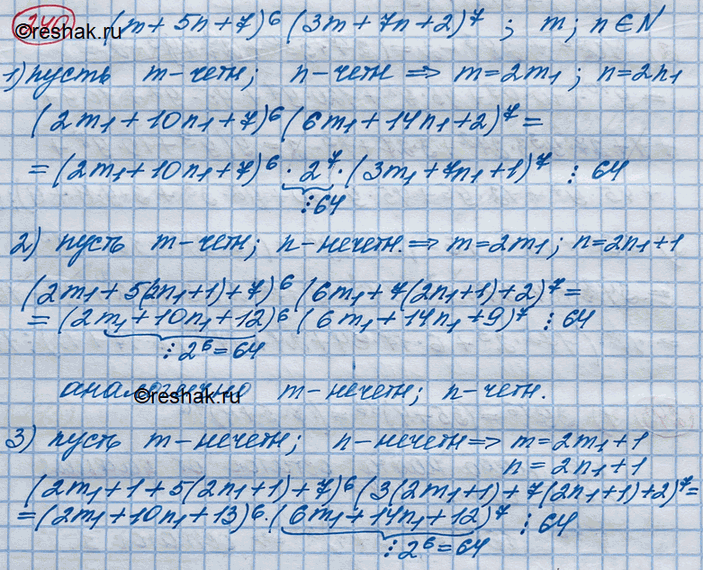 240 (m + 5n + 7)⁶ (3m + 7n + 2)⁷ ; m; n ∈ N
©reshak.ru
1) пусть m - четн; n - четн ⇒ m = 2m₁; n = 2n₁
(2m₁ + 10n₁ + 7)⁶ (6m₁ + 14n₁ + 2)⁷ =
= (2m₁ + 10n₁ + 7)⁶ · 2⁷ · (3m₁ + 7n₁ + 1)⁷ ⋮ 64
⋮ 64
2) пусть m - четн; n - нечетн. ⇒ m = 2m₁; n = 2n₁ + 1
(2m₁ + 5(2n₁ + 1) + 7)⁶ (6m₁ + 7(2n₁ + 1) + 2)⁷ =
= (2m₁ + 10n₁ + 12)⁶ (6m₁ + 14n₁ + 9)⁷ ⋮ 64
⋮ 2⁶ = 64
аналогично m - нечетн; n - четн.
©reshak.ru
3) пусть m - нечетн; n - нечетн ⇒ m = 2m₁ + 1
n = 2n₁ + 1
(2m₁ + 1 + 5(2n₁ + 1) + 7)⁶ (3(2m₁ + 1) + 7(2n₁ + 1) + 2)⁷ =
= (2m₁ + 10n₁ + 13)⁶ · (6m₁ + 14n₁ + 12)⁷ ⋮ 64
⋮ 2⁶ = 64